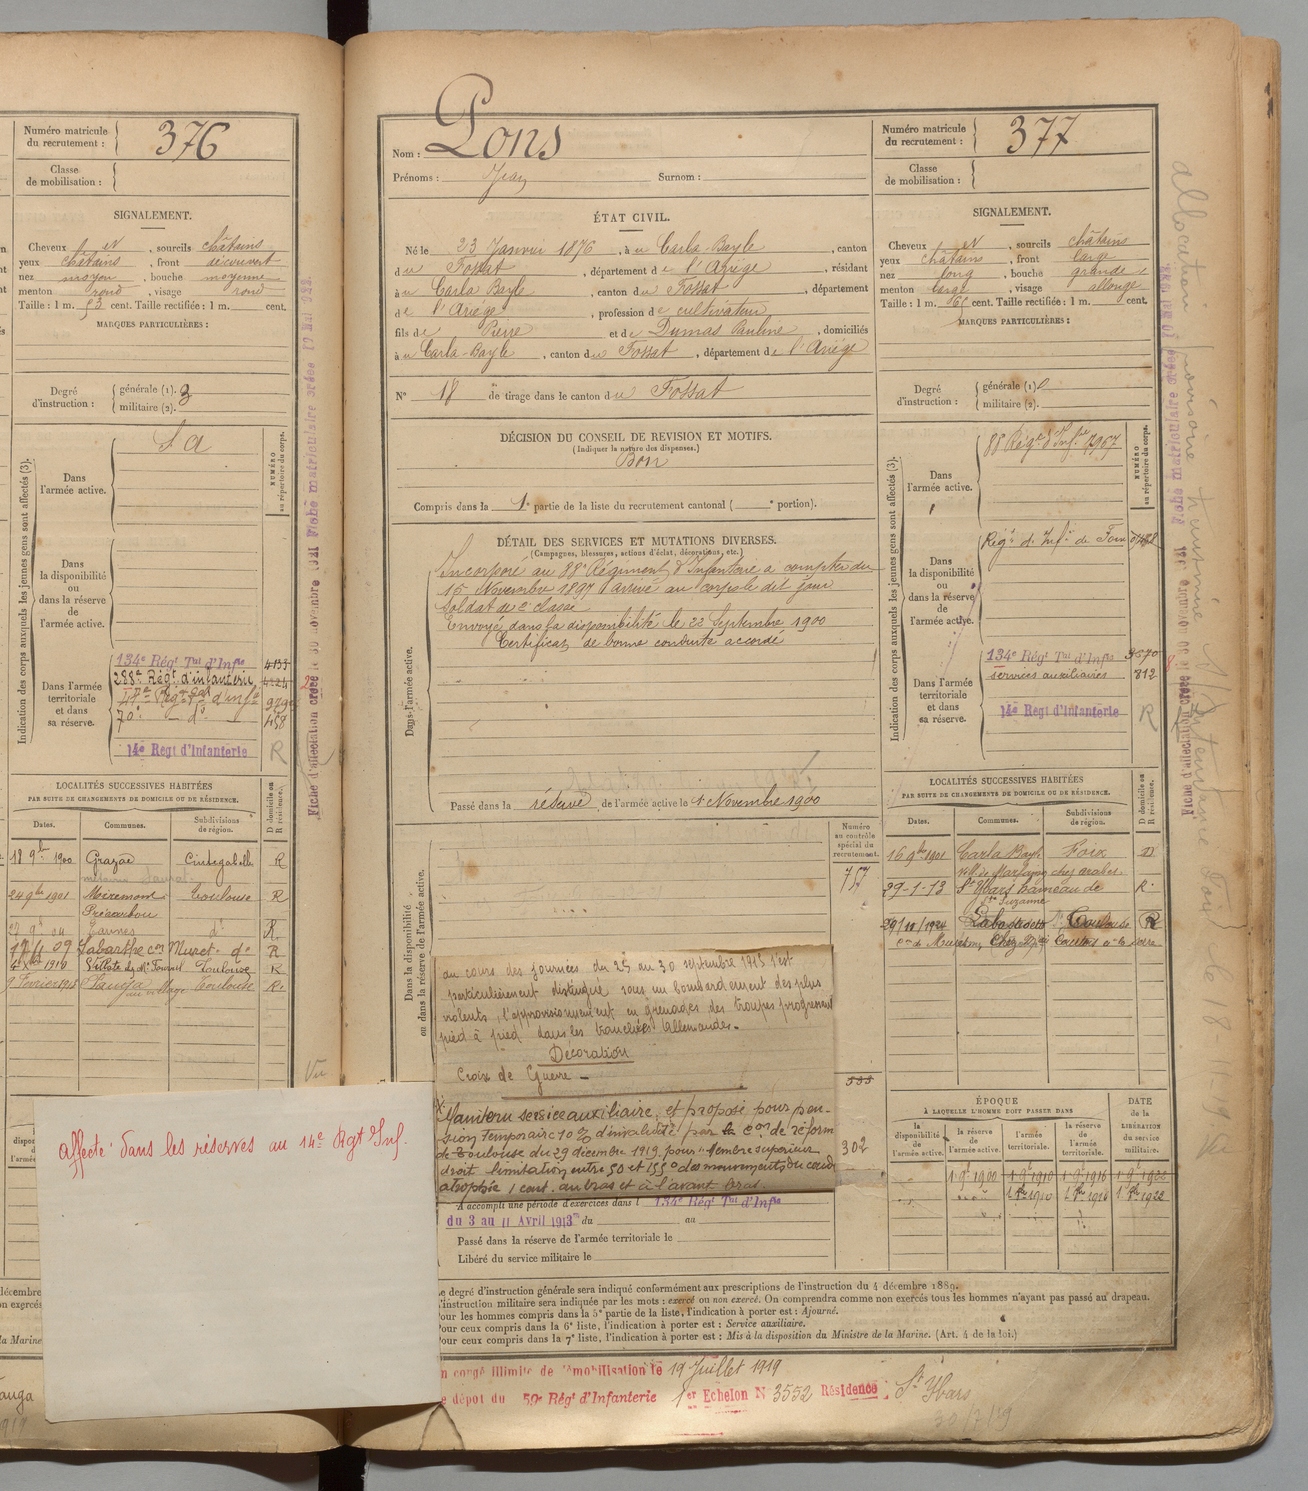 Numéro matricule
du recrutement :
376
Classe
de mobilisation :
SIGNALEMENT.
Cheveux et , sourcils châtains
yeux châtains , front découvert
nez moyen , bouche moyenne
menton rond , visage rond
Taille : 1 m. 53 cent. Taille rectifiée : 1 m. cent.
MARQUES PARTICULIÈRES :
Degré
d'instruction :
générale (1). 3
militaire (2).
Indication des corps auxquels les jeunes gens sont affectés (3).
NUMÉRO
au répertoire du corps.
Dans
l'armée active.
S A
Dans
la disponibilité
ou
dans la réserve
de
l'armée active.
Dans l'armée
territoriale
et dans
sa réserve.
134e Régt Tal d'Infie
288e Régt d'infanterie
70e — do
458
14e Régt d'Infanterie R
LOCALITÉS SUCCESSIVES HABITÉES
PAR SUITE DE CHANGEMENTS DE DOMICILE OU DE RÉSIDENCE.
D domicile ou
R résidence.
Dates. Communes. Subdivisions
de région.
18 9bre 1900 Grazac Cintegabelle R
24 9bre 1901 Miremont Toulouse R
Eaunes do R
17/11 09 Labarthe con Muret do R
Toulouse R
9 Février 1918 Toulouse R.
Fiche matriculaire créée 19 Mai 1922.
Fiche d'affectation créée le 30 novembre 1921
Vu
affecté dans les réserves au 14e Rgt Inf.
Nom : Pons
Prénoms : Jean Surnom :
ÉTAT CIVIL.
Né le 23 Janvier 1876 , à u Carla-Bayle , canton
du Fossat , département de l'Ariège , résidant
à u Carla Bayle , canton du Fossat , département
de l'Ariège , profession de cultivateur
fils de Pierre et de Dumas Pauline , domiciliés
à u Carla-Bayle , canton du Fossat , département de l'Ariège
N° 18 de tirage dans le canton du Fossat
DÉCISION DU CONSEIL DE REVISION ET MOTIFS.
(Indiquer la nature des dispenses.)
Bon
Compris dans la 1e partie de la liste du recrutement cantonal ( e portion).
DÉTAIL DES SERVICES ET MUTATIONS DIVERSES.
(Campagnes, blessures, actions d'éclat, décorations, etc.)
Dans l'armée active.
Incorporé au 88e Régiment d'Infanterie à compter du
15 Novembre 1897 arrivé au corps le dit jour
Soldat de 2e classe
Envoyé dans la disponibilité le 22 Septembre 1900
Certificat de bonne conduite accordé
Passé dans la réserve de l'armée active le 1 Novembre 1900
Dans la disponibilité
ou dans la réserve de l'armée active.
Numéro
au contrôle
spécial du
recrutement.
757
555
302
au cours des journées du 25 au 30 septembre 1915 s'est
particulièrement distingué sous un bombardement des plus
violents, l'approvisionnement en grenades des troupes progressant
pied à pied dans les tranchées allemandes.
Décoration
Croix de Guerre —
Maintenu service auxiliaire et proposé pour pen-
sion temporaire 10 % d'invalidité par la Con de réform
de Toulouse du 29 décembre 1919 pour "Membre supérieur
droit limitation entre 50 et 155° des mouvements du coud
atrophie 1 cent. au bras et à l'avant bras.
A accompli une période d'exercices dans l 134e Régt Tal d'Infie
du 3 au 11 Avril 1913 du au
Passé dans la réserve de l'armée territoriale le
Libéré du service militaire le
e degré d'instruction générale sera indiqué conformément aux prescriptions de l'instruction du 4 décembre 1889.
'instruction militaire sera indiquée par les mots : exercé ou non exercé. On comprendra comme non exercés tous les hommes n'ayant pas passé au drapeau.
Pour les hommes compris dans la 5e partie de la liste, l'indication à porter est : Ajourné.
Pour ceux compris dans la 6e liste, l'indication à porter est : Service auxiliaire.
Pour ceux compris dans la 7e liste, l'indication à porter est : Mis à la disposition du Ministre de la Marine. (Art. 4 de la loi.)
n congé illimité de démobilisation le 19 Juillet 1919
e dépôt du 59e Régt d'Infanterie 1er Echelon N 3552 Résidence : St Ybars
30/7/19
Numéro matricule
du recrutement :
377
Classe
de mobilisation :
SIGNALEMENT.
Cheveux et , sourcils châtains
yeux châtains , front large
nez long , bouche grande
menton large , visage allongé
Taille : 1 m. 65 cent. Taille rectifiée : 1 m. cent.
MARQUES PARTICULIÈRES :
Degré
d'instruction :
générale (1)
militaire (2).
Indication des corps auxquels les jeunes gens sont affectés (3).
NUMÉRO
au répertoire du corps.
Dans
l'armée active.
88 Régt d'Infrie 7967
Dans
la disponibilité
ou
dans la réserve
de
l'armée active.
Régt d'Inf. de Foix
Dans l'armée
territoriale
et dans
sa réserve.
134e Régt Tal d'Infie 3570
services auxiliaires 812
14e Régt d'Infanterie R
LOCALITÉS SUCCESSIVES HABITÉES
PAR SUITE DE CHANGEMENTS DE DOMICILE OU DE RÉSIDENCE.
D domicile ou
R résidence.
Dates. Communes. Subdivisions
de région.
16 9bre 1901 Carla Bayle Foix D
29-1-13 St Ybars hameau de R.
Ste Suzanne
29/11/1920 Toulouse R
ÉPOQUE
À LAQUELLE L'HOMME DOIT PASSER DANS
DATE
de la
LIBÉRATION
du service
militaire.
la
disponibilité
de
l'armée active.
la réserve
de
l'armée active.
l'armée
territoriale.
la réserve
de
l'armée
territoriale.
1 9e 1900 1 9e 1910 1 9e 1916 1 9e 1922
1 8bre 1910 1 8bre 1916 1 8bre 1922
Fiche matriculaire créée 19 Mai 1922.
Fiche d'affectation créée le 30 novembre 1921
allocation provisoire transmise
le 18-11-19